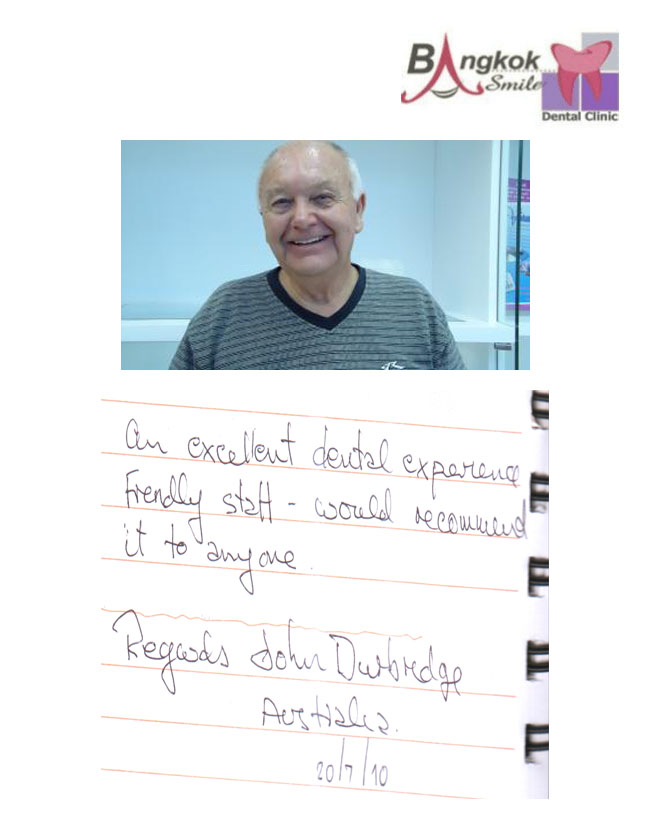 BAngkok
Smile
Dental Clinic
An excellent dental experience
Friendly staff - would recommend
it to anyone.
Regards John Durbridge
Australia.
20/7/10